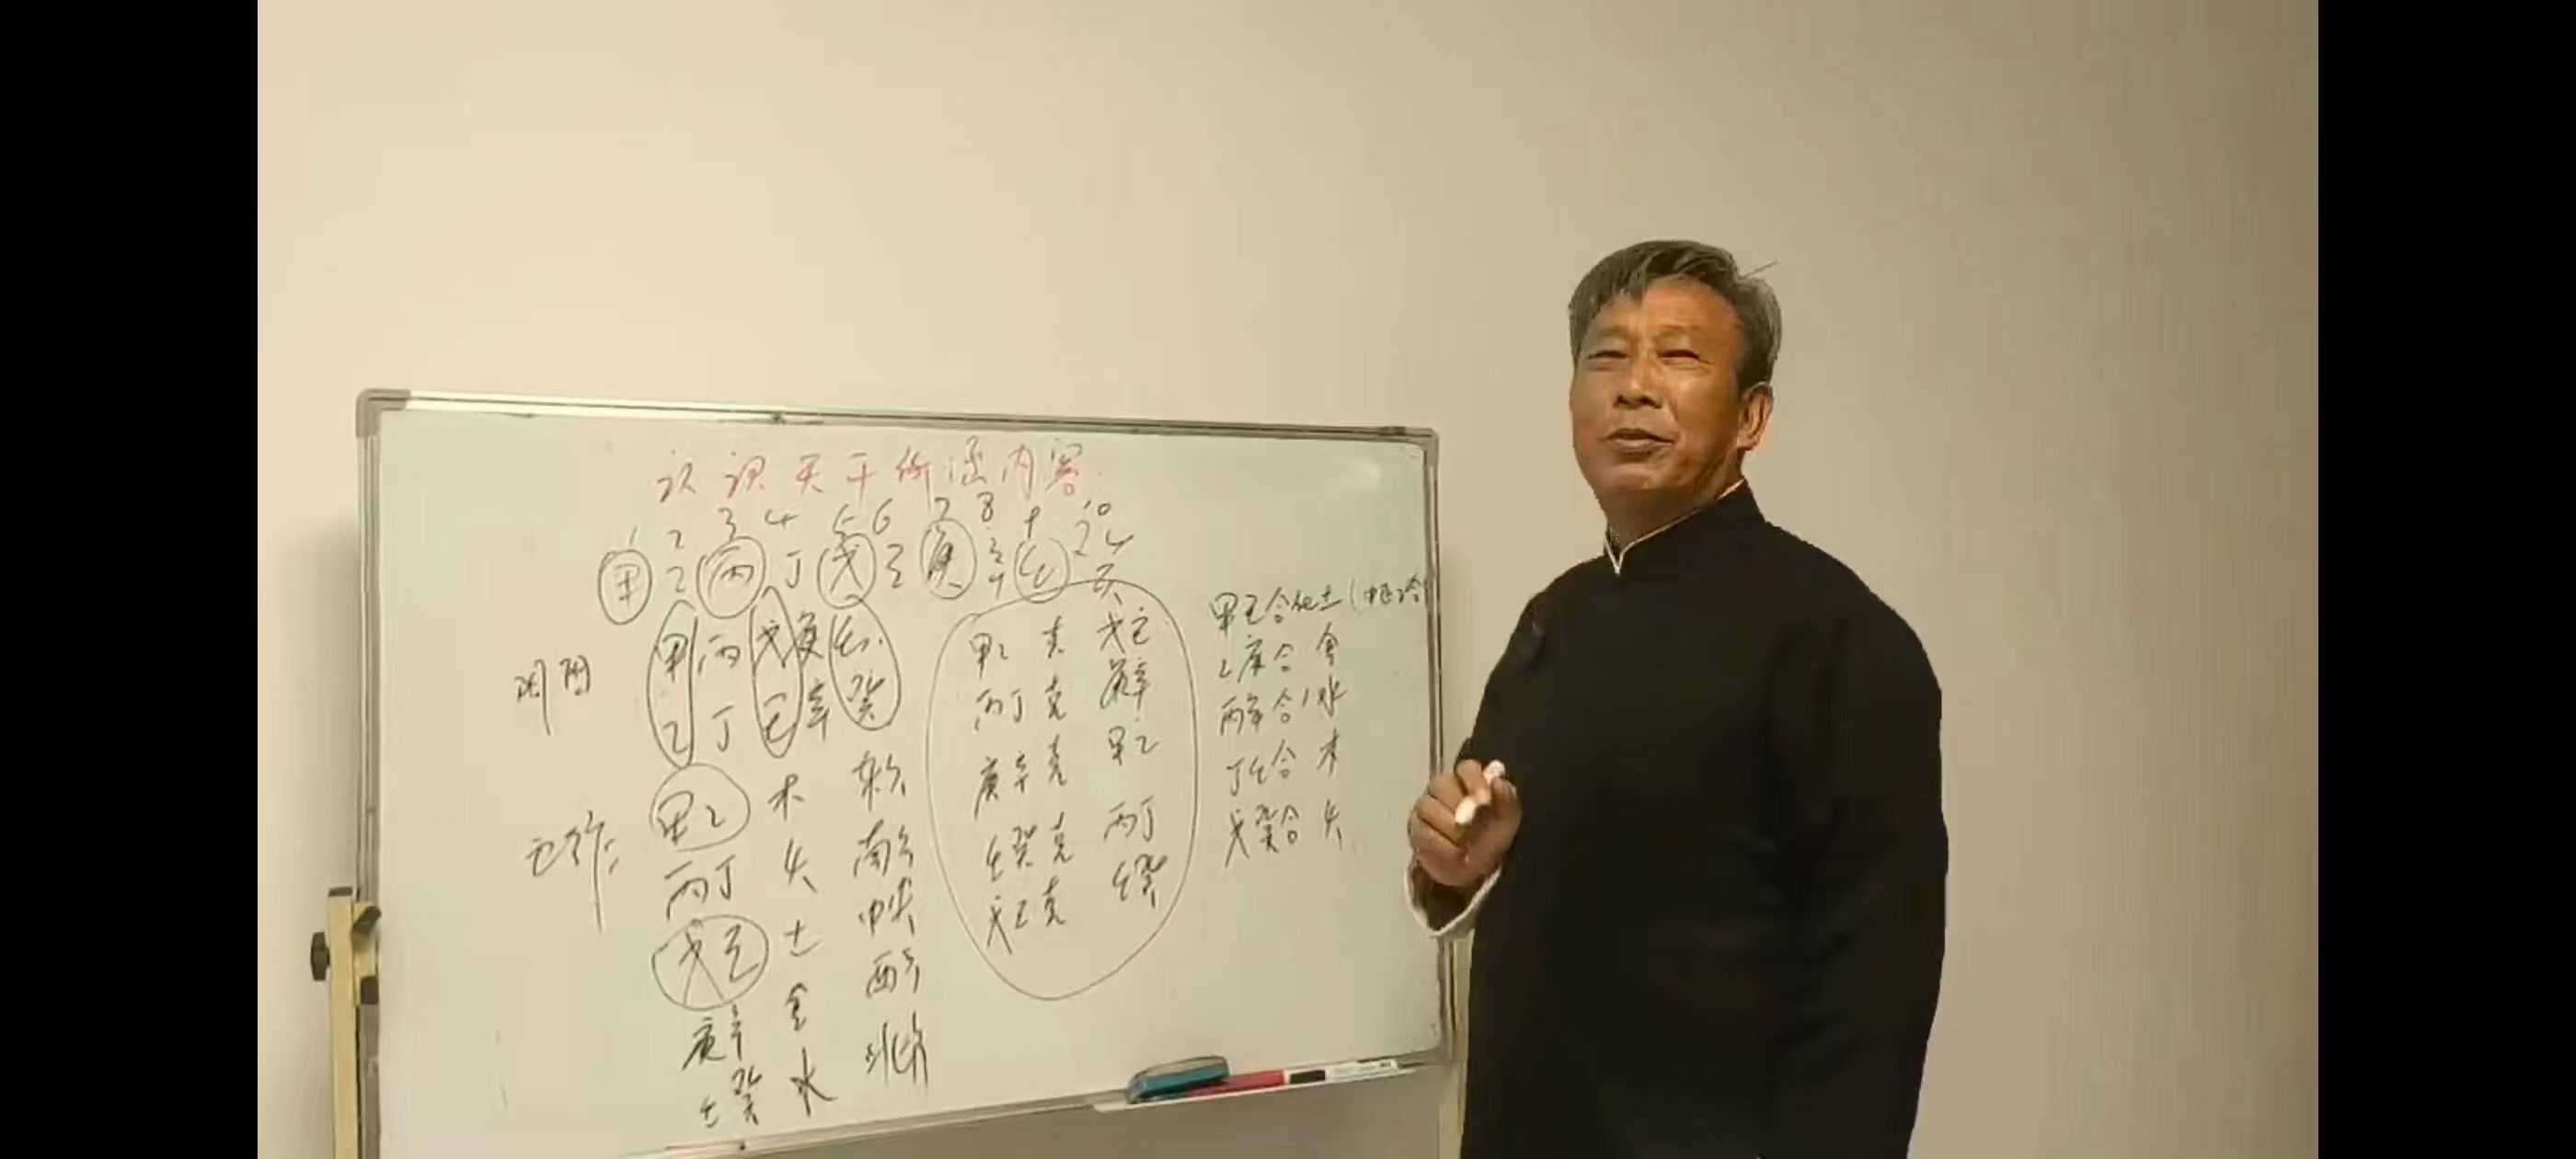 认识天干所涵内容
1 2 3 4 5 6 7 8 9 10
甲 乙 丙 丁 戊 己 庚 辛 壬 癸
阴阳
甲 丙 戊 庚 壬
乙 丁 己 辛 癸
甲乙 木 东方
丙丁 火 南方
戊己 土 中央
庚辛 金 西方
壬癸 水 北方
甲乙 克 戊己
丙丁 克 庚辛
庚辛 克 甲乙
壬癸 克 丙丁
戊己 克 壬癸
甲己合化土
乙庚合 金
丙辛合 水
丁壬合 木
戊癸合 火